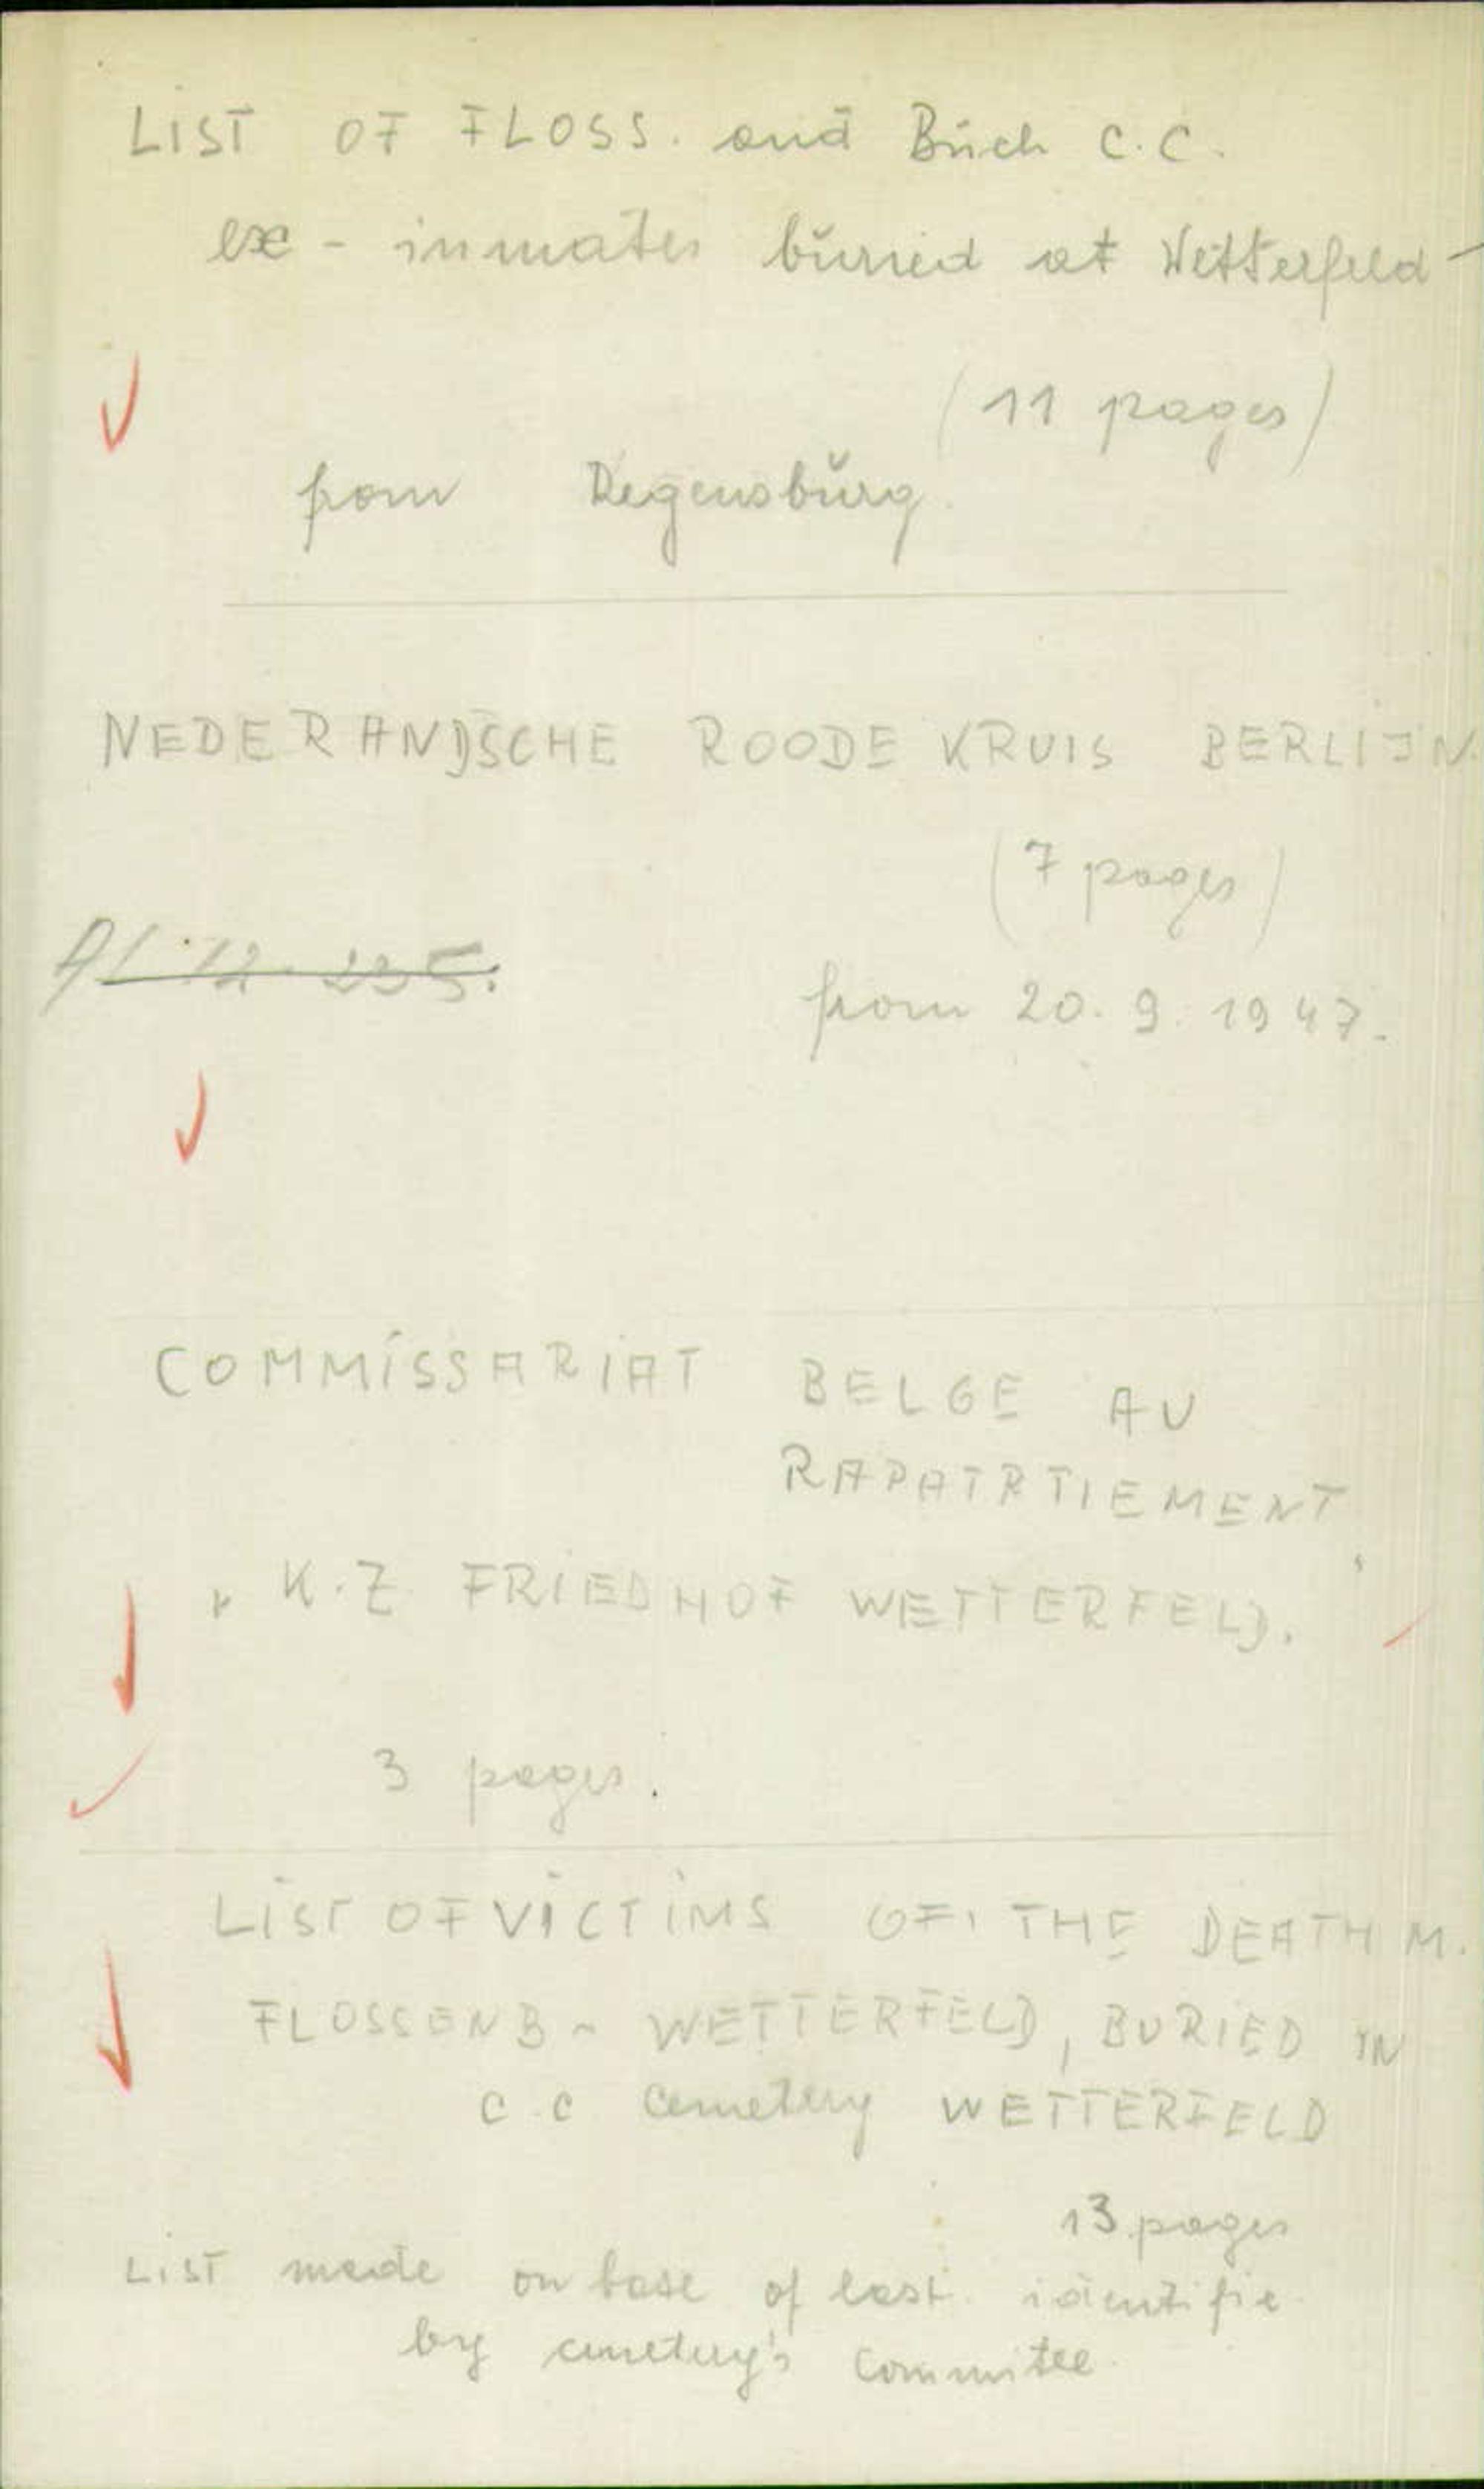 LIST OF FLOSS. and Buch C.C.
ex - inmates buried at Wetterfeld -
(11 pages)
from Regensburg.
NEDERANDSCHE ROODE KRUIS BERLIJN.
(7 pages)
from 20. 9. 1947.
COMMISSARIAT BELGE AU
RAPATRTIEMENT
K.Z. FRIEDHOF WETTERFELD.
3 pages.
LIST OF VICTIMS OF THE DEATH M.
FLOSSENB - WETTERFELD, BURIED IN
C.C Cemetery WETTERFELD
13 pages
LIST made on base of last. identifie
by cemetery's Commitee.